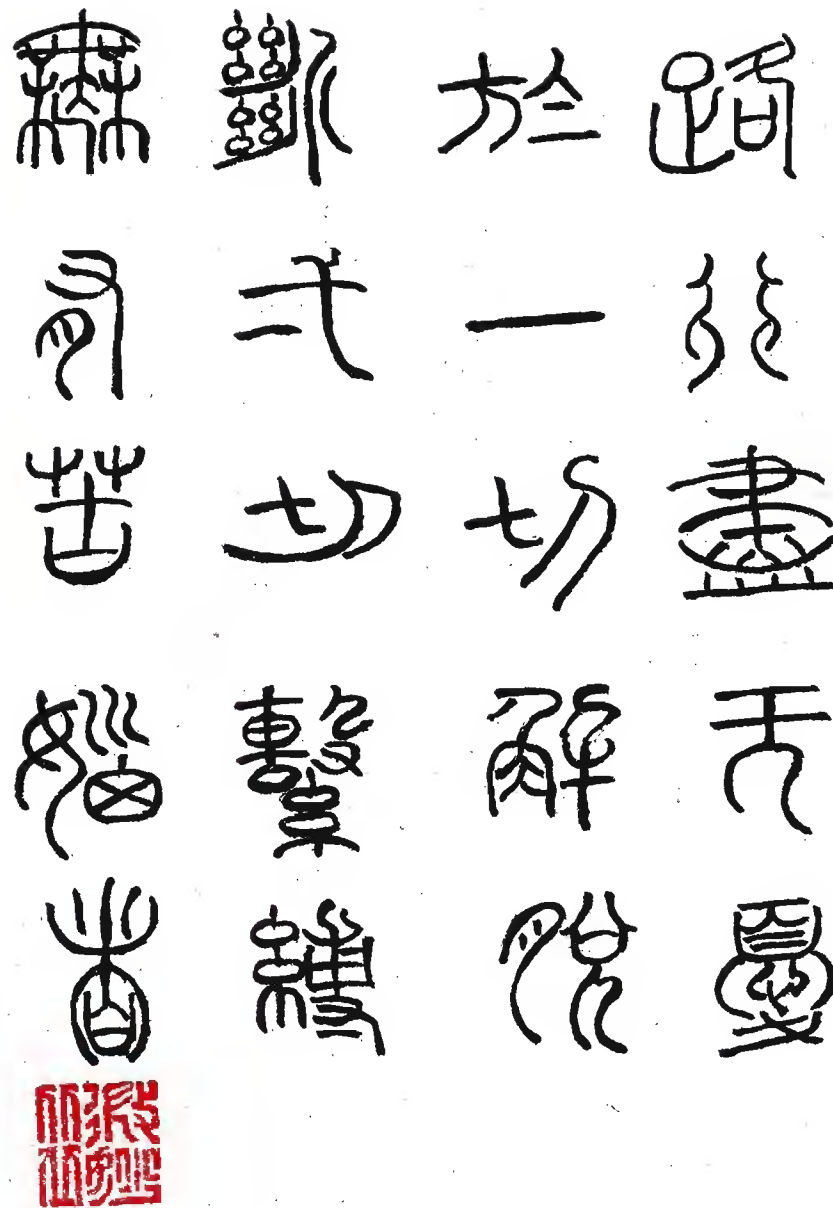 路行盡无憂
於一切解脫
斷一切繫縛
無有苦惱者